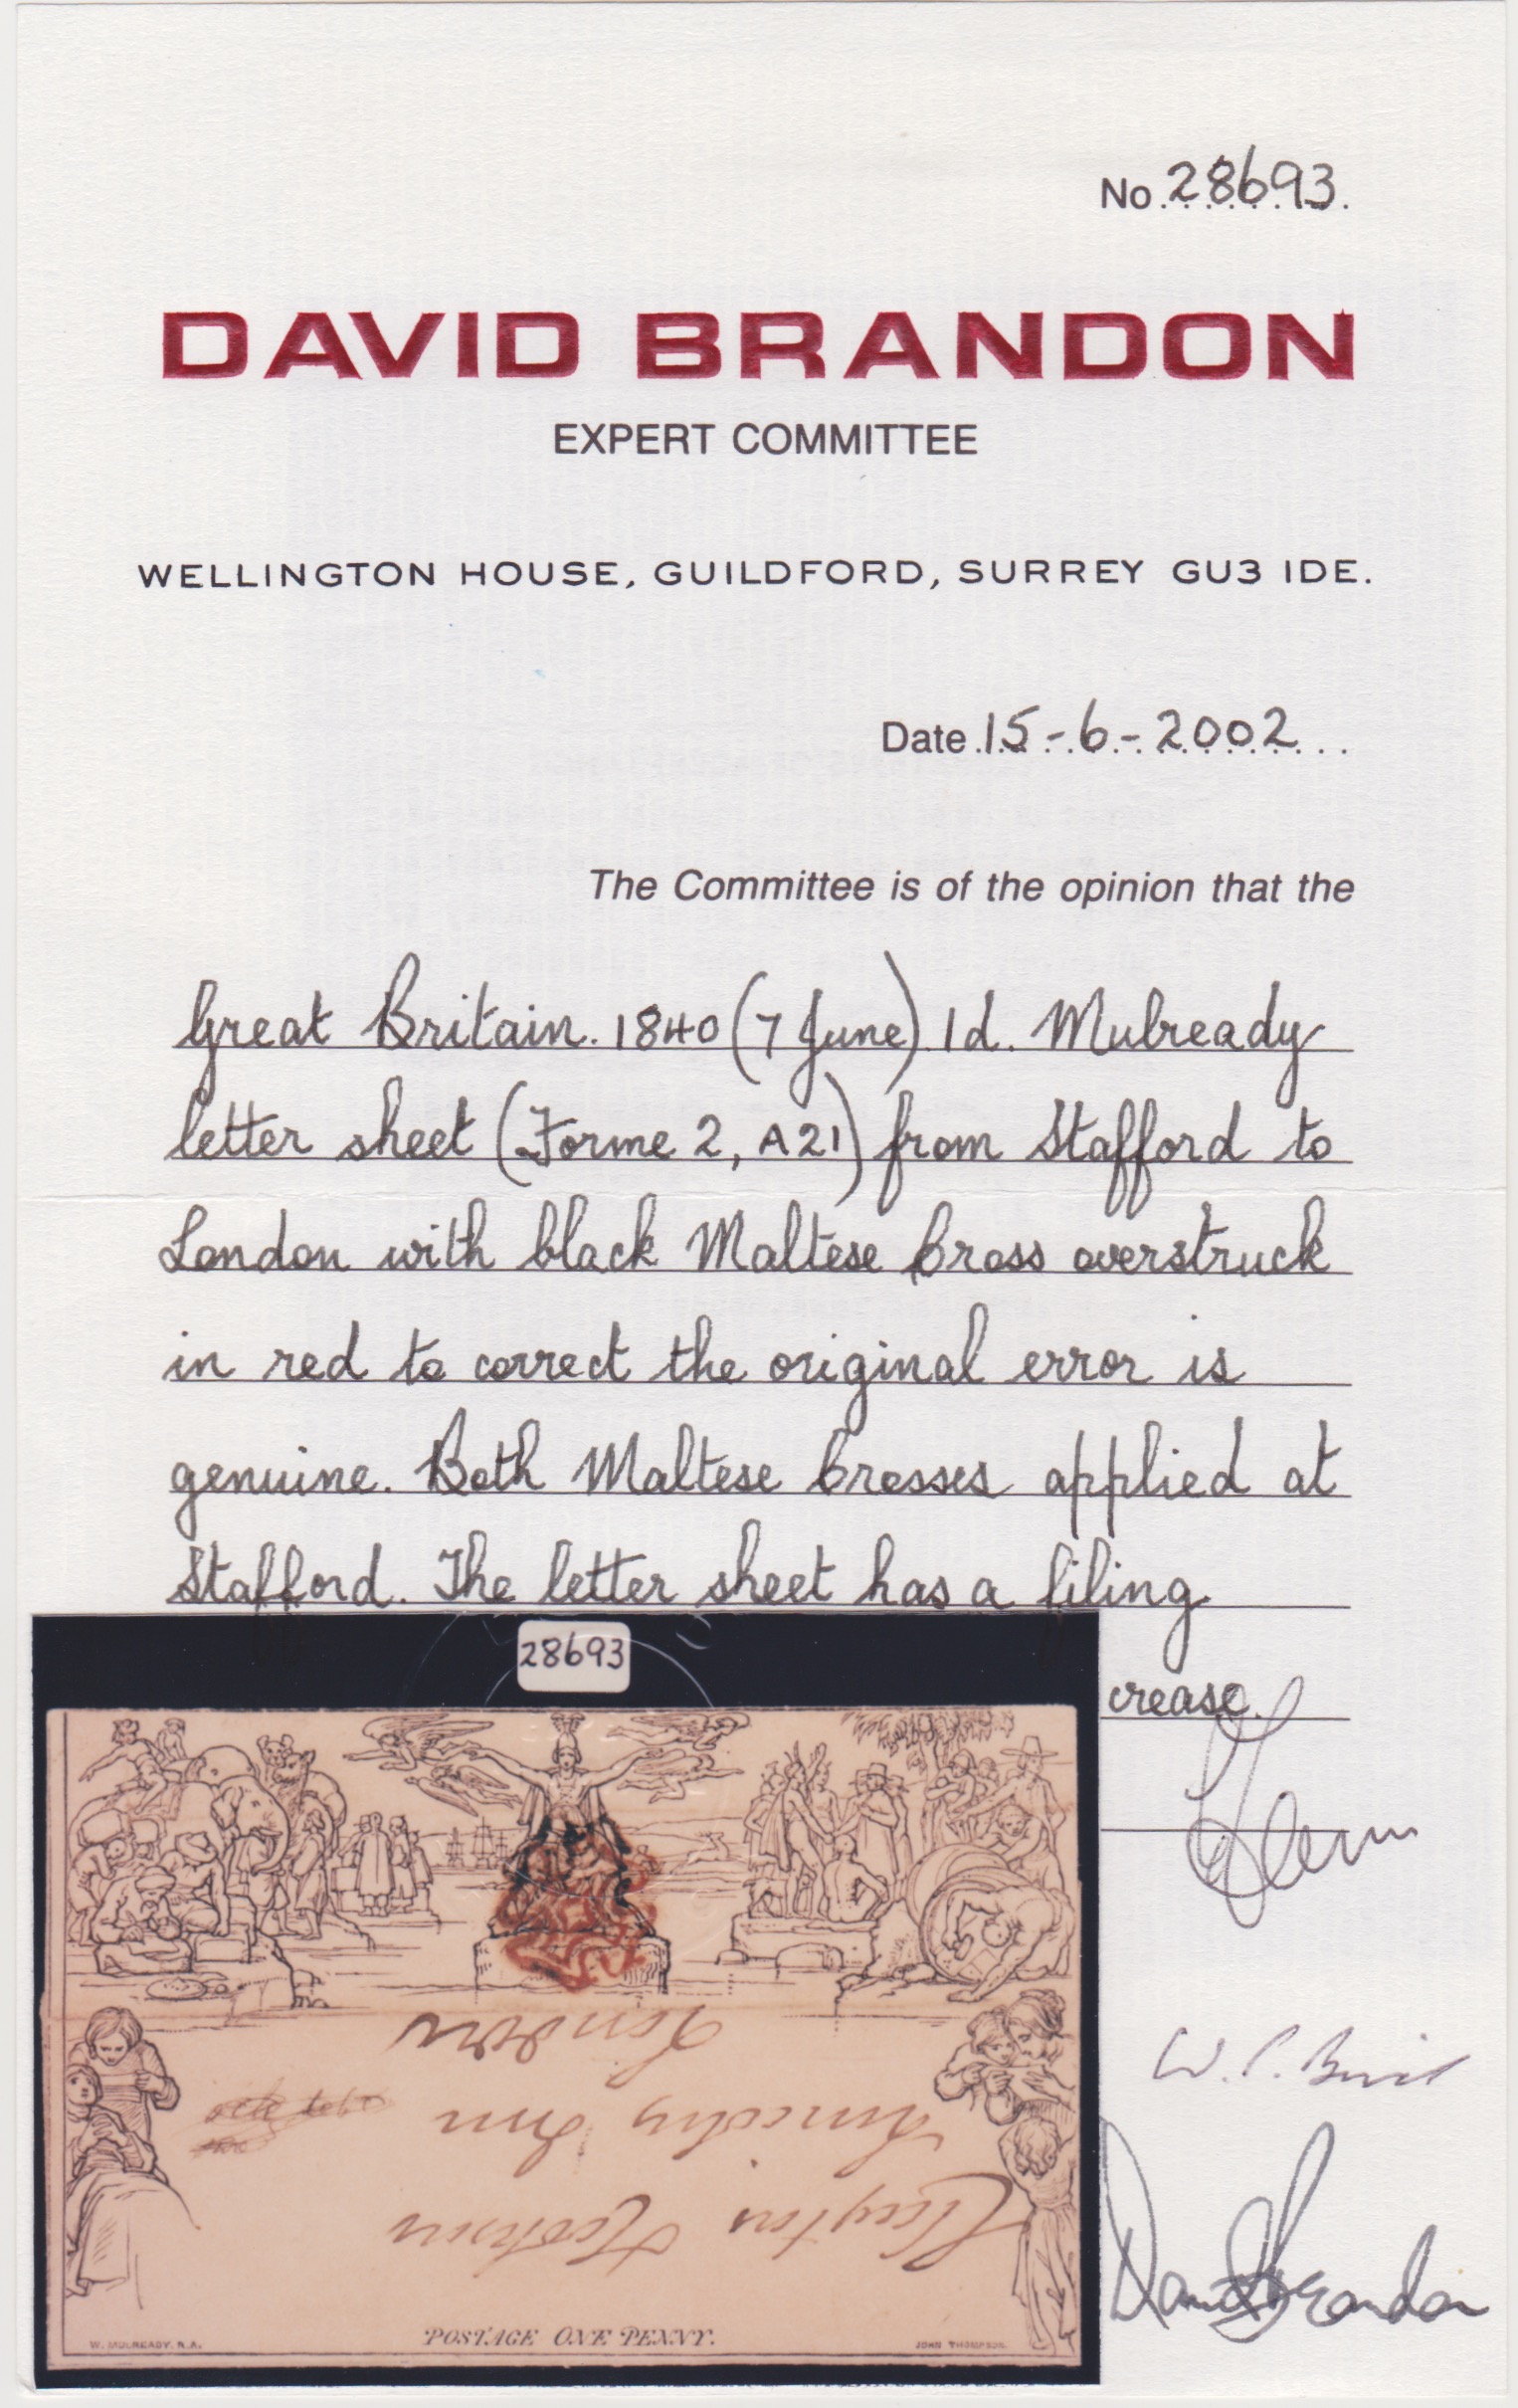 No. 28693.
DAVID BRANDON
EXPERT COMMITTEE
WELLINGTON HOUSE, GUILDFORD, SURREY GU3 1DE.
Date 15-6-2002
The Committee is of the opinion that the
Great Britain. 1840 (7 June) 1d. Mulready
letter sheet (Forme 2, A21) from Stafford to
London with black Maltese Cross overstruck
in red to correct the original error is
genuine. Both Maltese Crosses applied at
Stafford. The letter sheet has a filing
crease.
28693
London
Lincolns Inn
Clayton
POSTAGE ONE PENNY.
W. MULREADY. R.A.
JOHN THOMPSON.
David Brandon